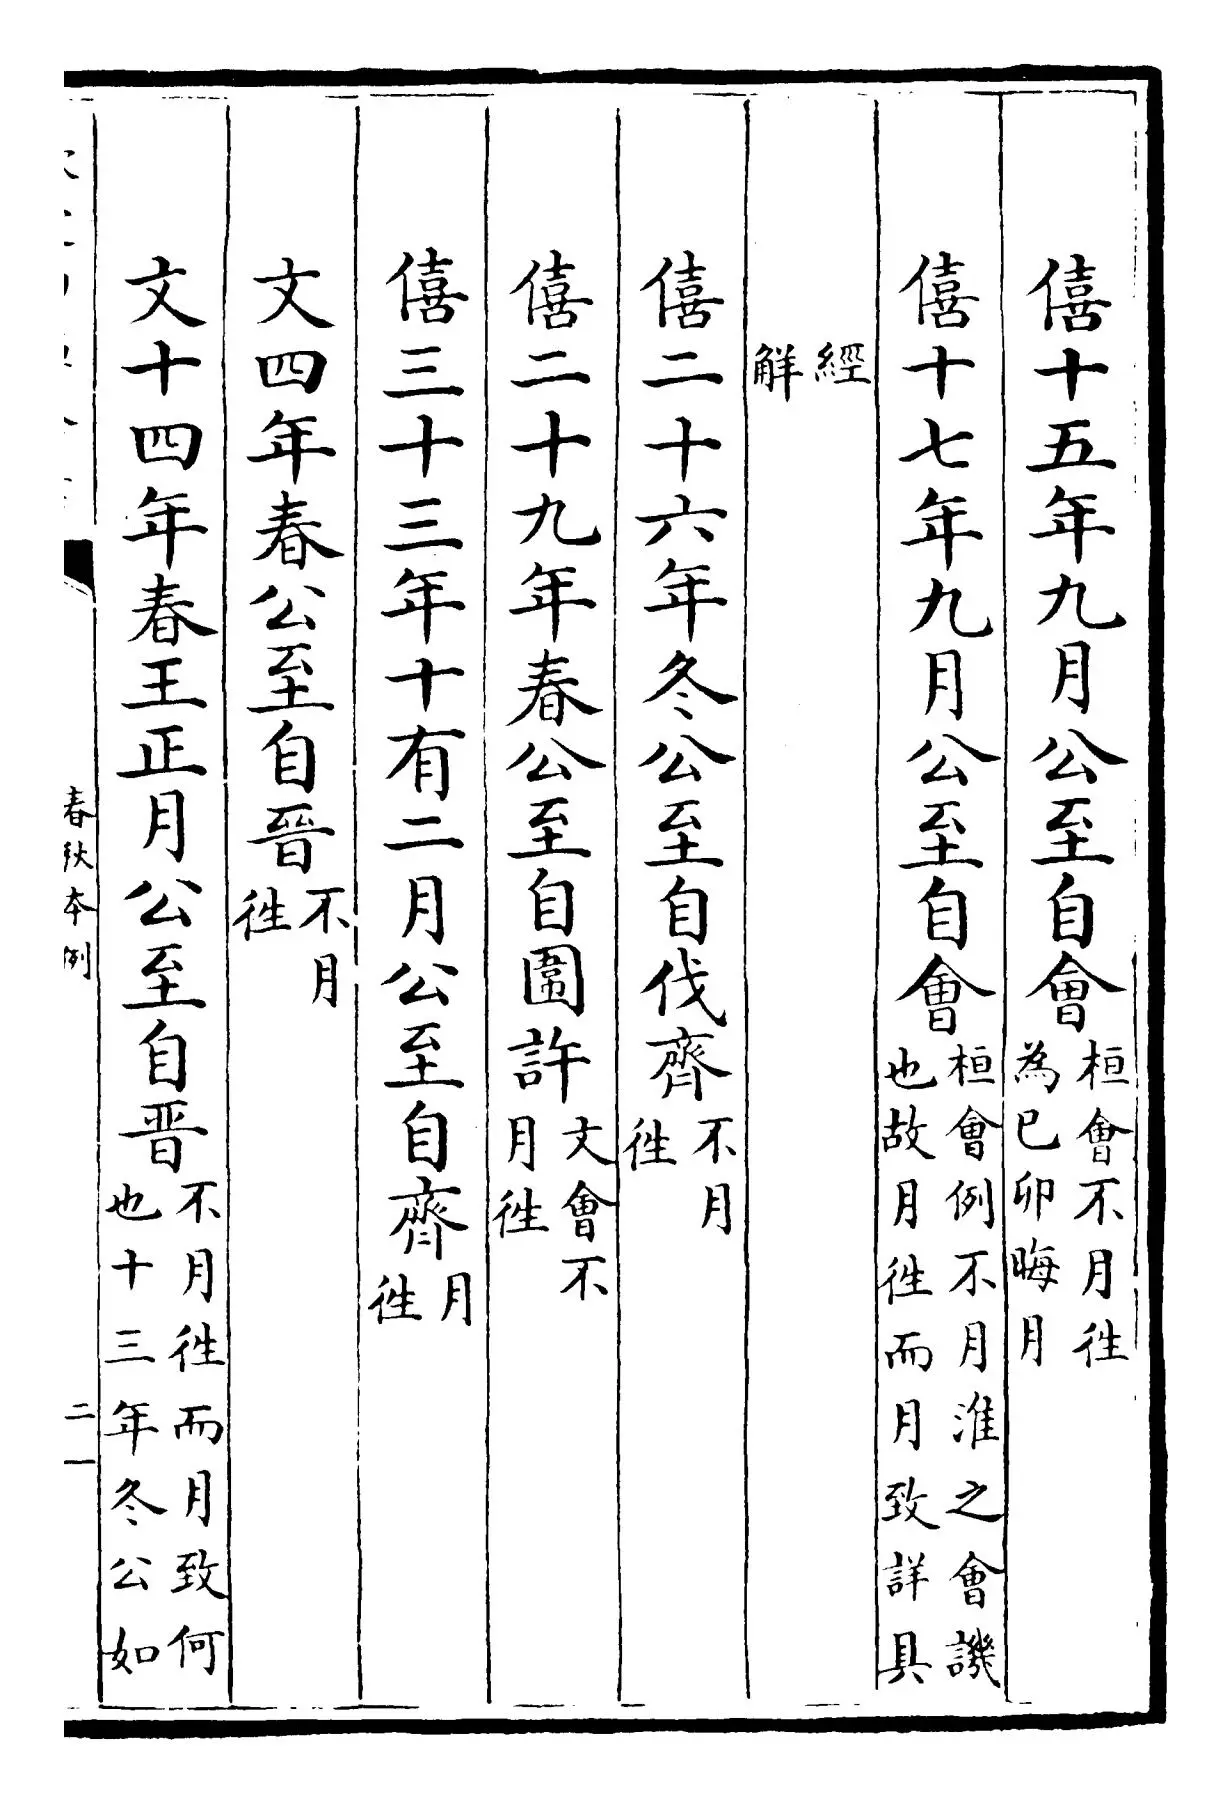 僖十五年九月公至自會桓會不月徃為已卯晦月
僖十七年九月公至自會桓會例不月淮之會譏也故月徃而月致詳具
經解
僖二十六年冬公至自伐齊不月徃
僖二十九年春公至自圍許文會不月徃
僖三十三年十有二月公至自齊月徃
文四年春公至自晉不月徃
文十四年春王正月公至自晋不月徃而月致何也十三年冬公如
春秋本例
二一